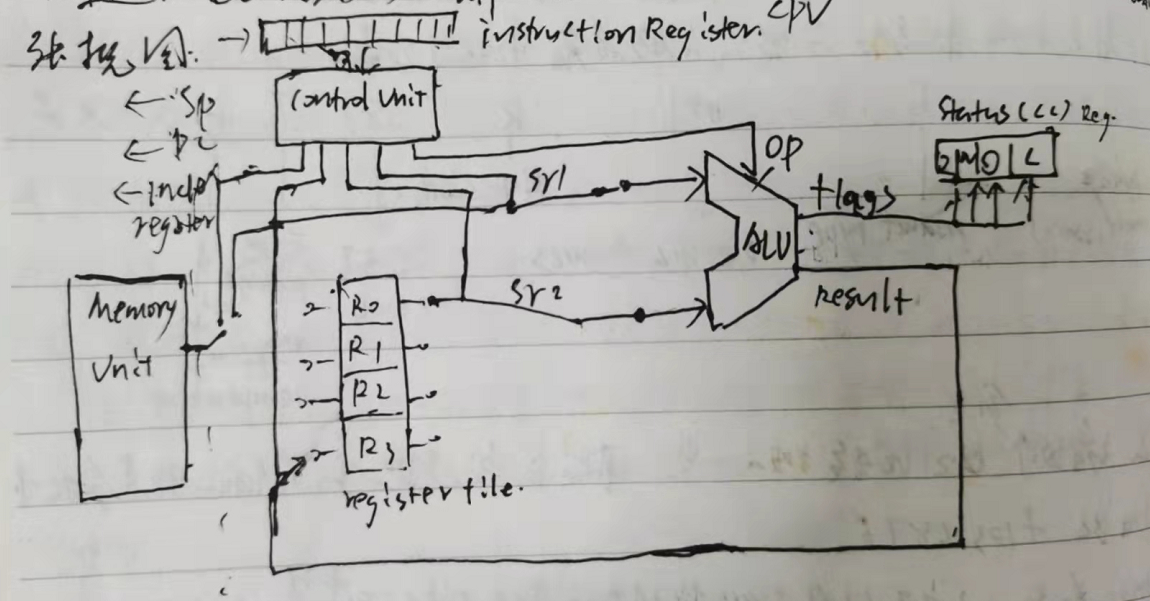 instruction Register. CPU
← Sp
Control Unit
← PC
← index
register
Status (CC) Reg.
OP
Sr1
flags
ALU
Memory
Unit
R0
Sr2
result
R1
R2
R3
register file.